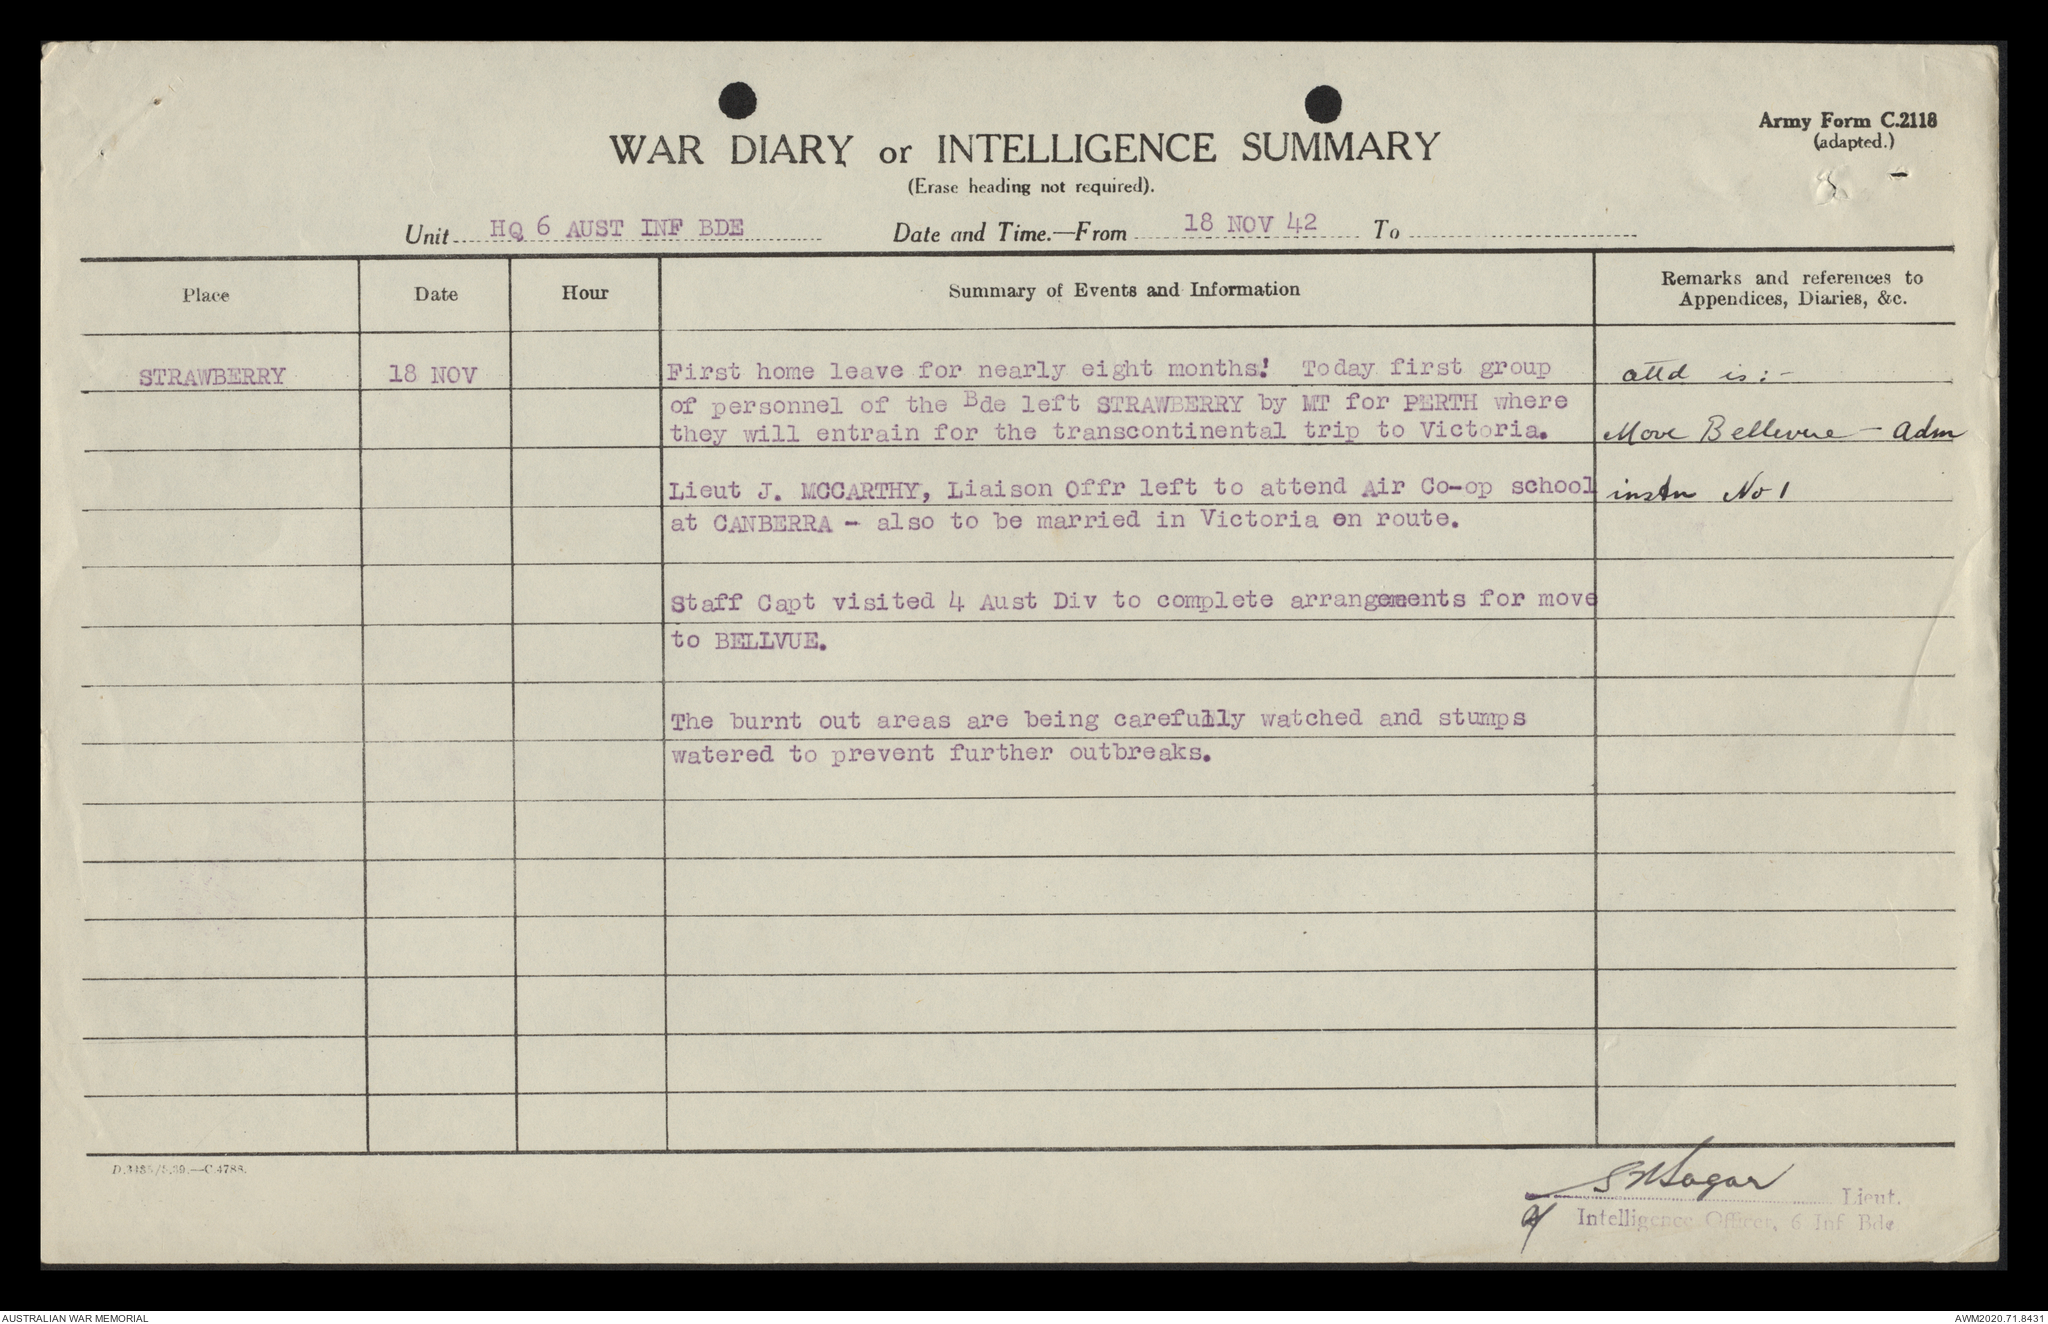 Army Form C.2118
(adapted.)
WAR DIARY or INTELLIGENCE SUMMARY
(Erase heading not required).
Unit HQ 6 AUST INF BDE Date and Time.—From 18 NOV 42 To
Place Date Hour Summary of Events and Information Remarks and references to
Appendices, Diaries, &c.
STRAWBERRY 18 NOV First home leave for nearly eight months! Today first group
of personnel of the Bde left STRAWBERRY by MT for PERTH where
they will entrain for the transcontinental trip to Victoria.
Lieut J. MCCARTHY, Liaison Offr left to attend Air Co-op school
at CANBERRA - also to be married in Victoria en route.
Staff Capt visited 4 Aust Div to complete arrangements for move
to BELLVUE.
The burnt out areas are being carefully watched and stumps
watered to prevent further outbreaks.
attd is:-
Move Bellevue - adm
instn No 1
Lieut.
Intelligence Officer, 6 Inf Bde
AUSTRALIAN WAR MEMORIAL
AWM2020.71.8431